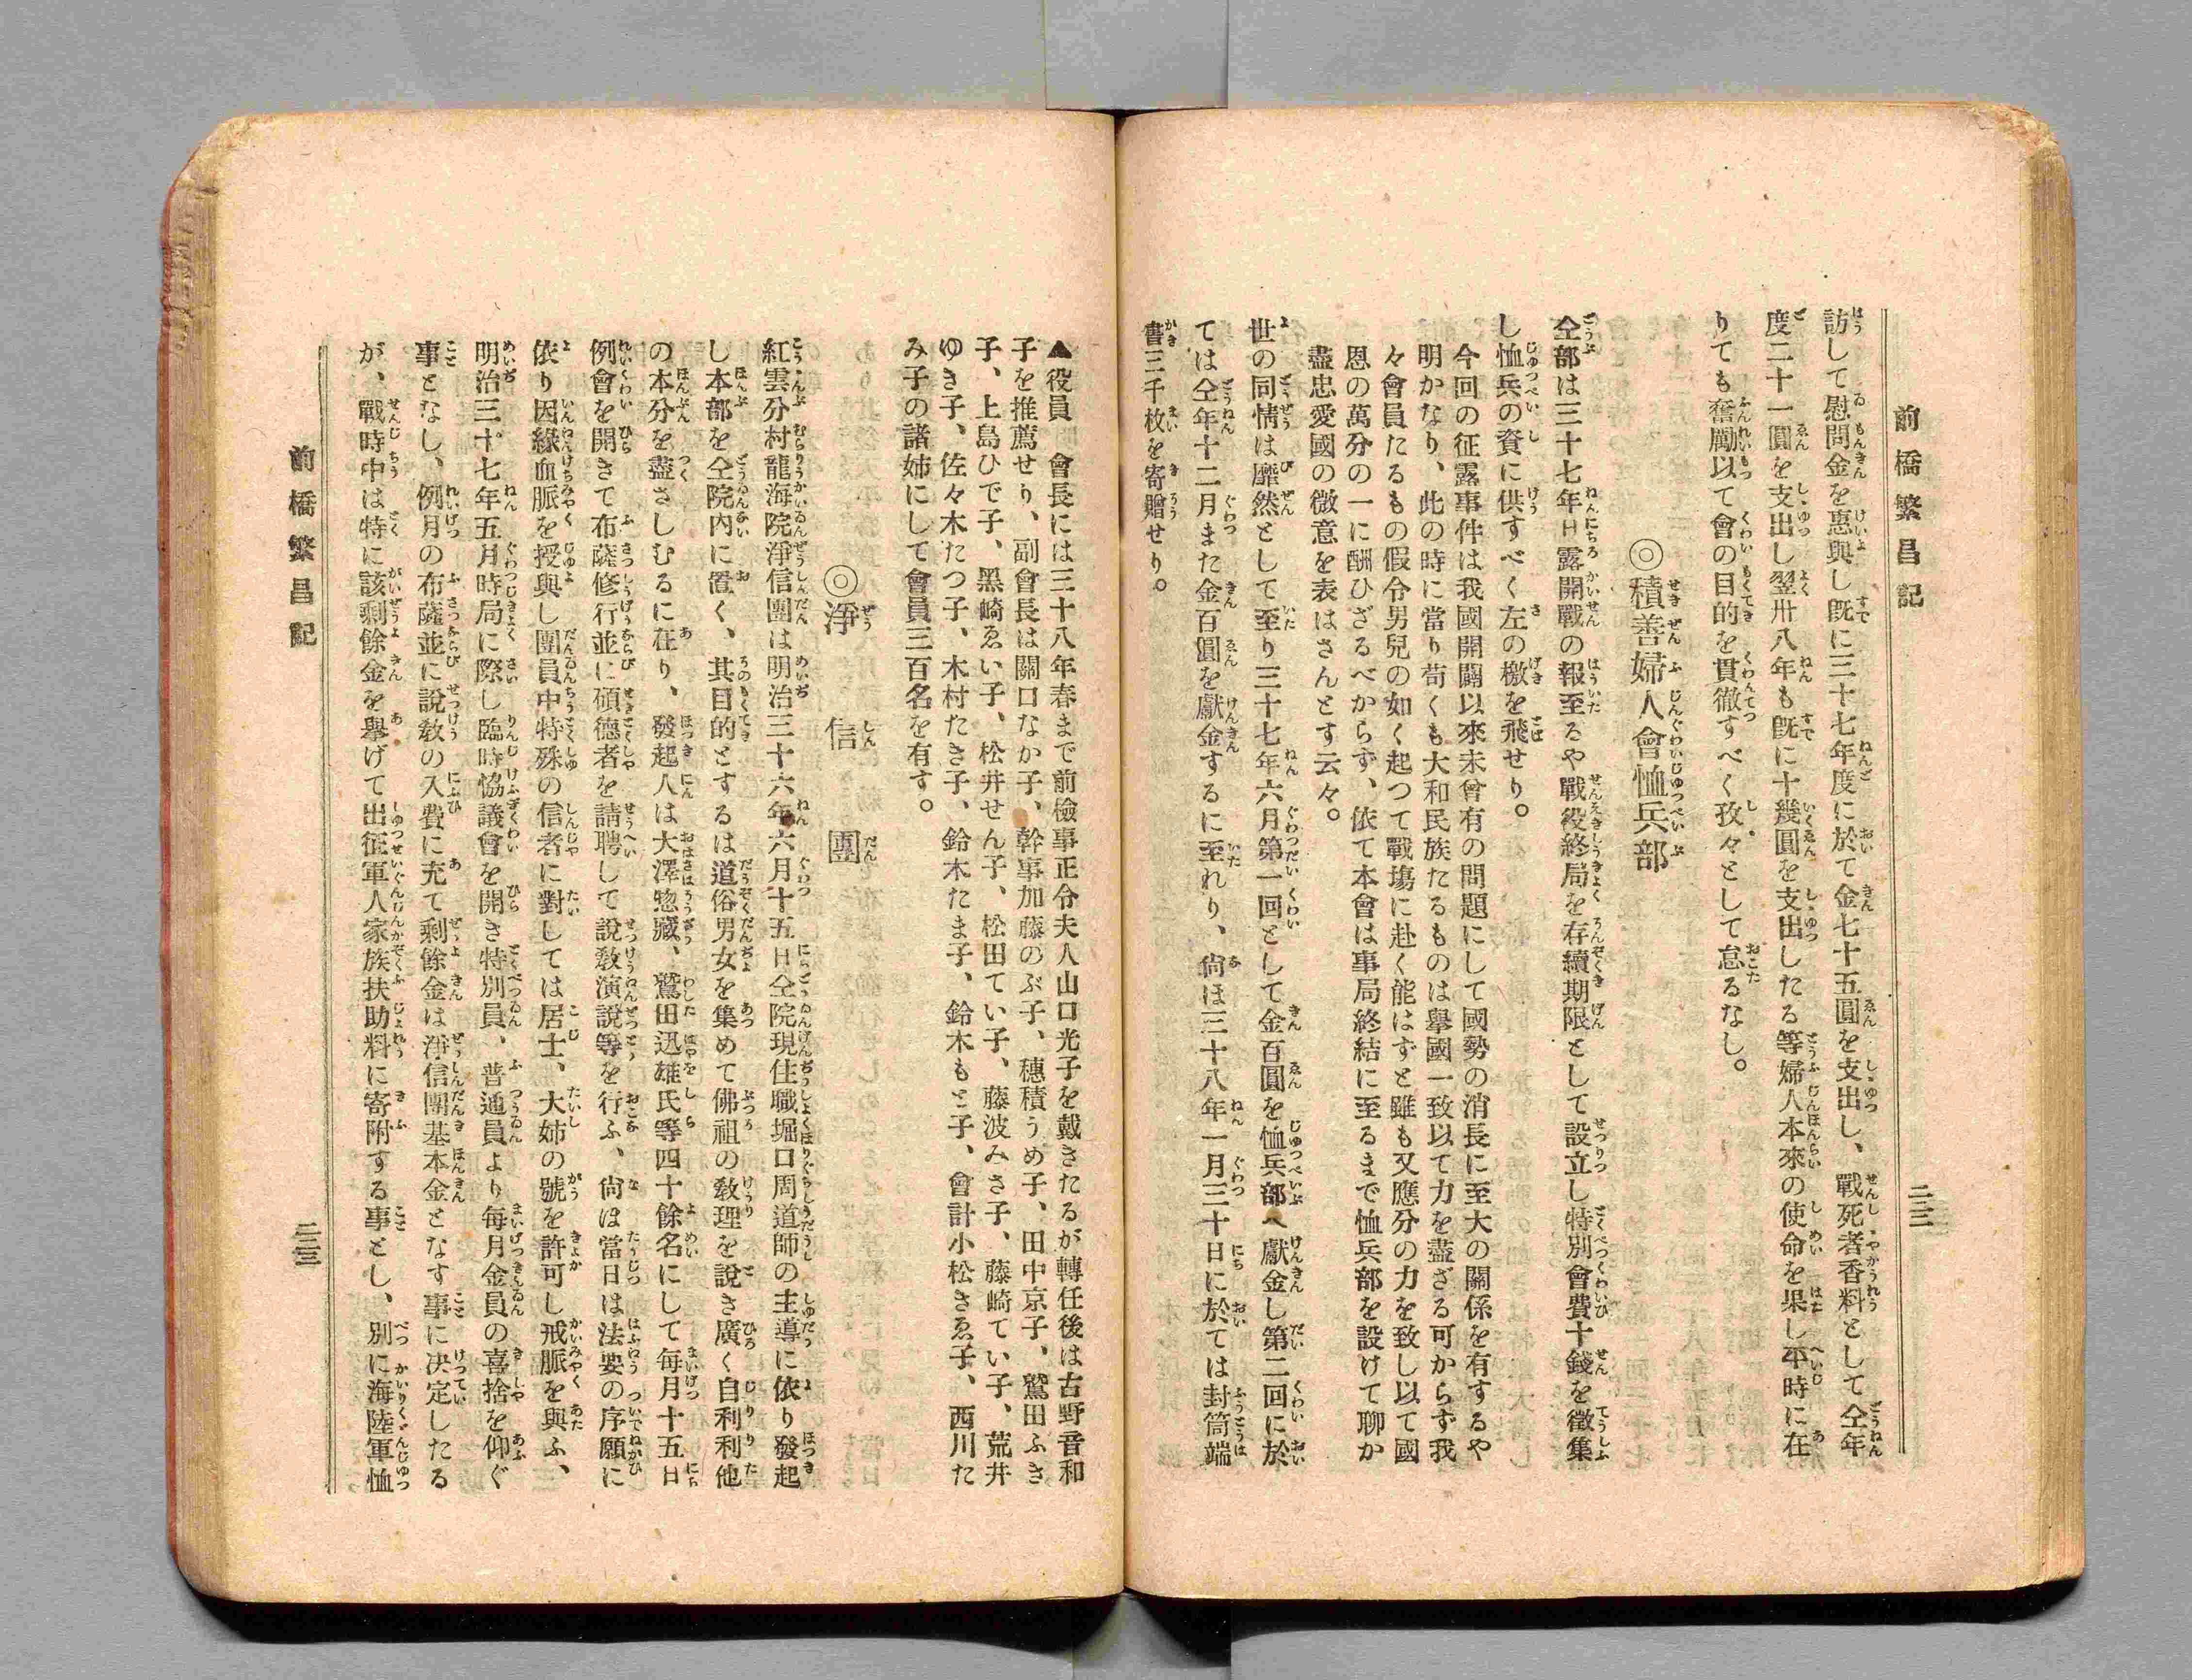 前橋繁昌記
二二
訪して慰問金を惠與し旣に三十七年度に於て金七十五圓を支出し、戰死者香料として仝年
度二十一圓を支出し翌卅八年も旣に十幾圓を支出したる等婦人本來の使命を果し平時に在
りても奮勵以て會の目的を貫徹すべく孜々として怠るなし。
◎積善婦人會恤兵部
仝部は三十七年日露開戰の報至るや戰役終局を存續期限として設立し特別會費十錢を徵集
し恤兵の資に供すべく左の檄を飛せり。
今回の征露事件は我國開闢以來未曾有の問題にして國勢の消長に至大の關係を有するや
明かなり、此の時に當り苟くも大和民族たるものは擧國一致以て力を盡ざる可からず我
々會員たるもの假令男兒の如く起つて戰塲に赴く能はずと雖も又應分の力を致し以て國
恩の萬分の一に酬ひざるべからず、依て本會は事局終結に至るまで恤兵部を設けて聊か
盡忠愛國の微意を表はさんとす云々。
世の同情は靡然として至り三十七年六月第一回として金百圓を恤兵部へ獻金し第二回に於
ては仝年十二月また金百圓を獻金するに至れり、尙ほ三十八年一月三十日に於ては封筒端
書三千枚を寄贈せり。
▲役員　會長には三十八年春まで前檢事正令夫人山口光子を戴きたるが轉任後は古野音和
子を推薦せり、副會長は關口なか子、幹事加藤のぶ子、穗積うめ子、田中京子、鷲田ふき
子、上島ひで子、黑崎ゑい子、松井せん子、松田てい子、藤波みさ子、藤崎てい子、荒井
ゆき子、佐々木たつ子、木村たき子、鈴木たま子、鈴木もと子、會計小松きゑ子、西川た
み子の諸姉にして會員三百名を有す。
◎淨信團
紅雲分村龍海院淨信團は明治三十六年六月十五日仝院現住職堀口周道師の主導に依り發起
し本部を仝院內に置く、其目的とするは道俗男女を集めて佛祖の敎理を說き廣く自利利他
の本分を盡さしむるに在り、發起人は大澤惣藏、鷲田迅雄氏等四十餘名にして每月十五日
例會を開きて布薩修行並に碩德者を請聘して說敎演說等を行ふ、尙ほ當日は法要の序願に
依り因緣血脈を授與し團員中特殊の信者に對しては居士、大姉の號を許可し戒脈を與ふ、
明治三十七年五月時局に際し臨時協議會を開き特別員、普通員より每月金員の喜捨を仰ぐ
事となし、例月の布薩並に說敎の入費に充て剩餘金は淨信團基本金となす事に決定したる
が、戰時中は特に該剩餘金を擧げて出征軍人家族扶助料に寄附する事とし、別に海陸軍恤
前橋繁昌記
二三